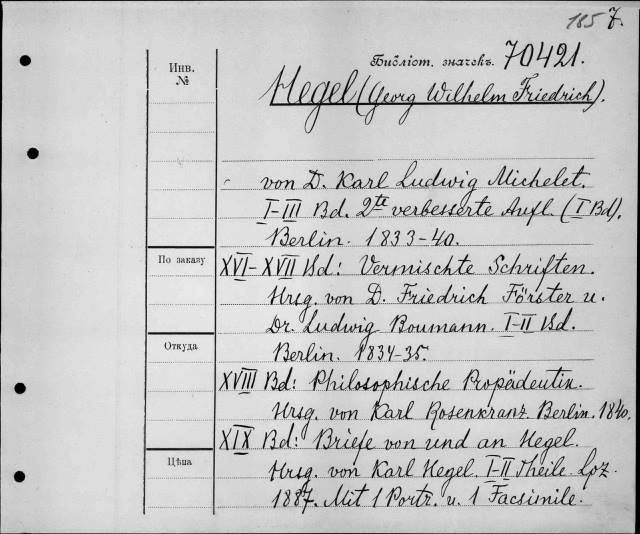 185 7.
Библіот. значекъ. 70421.
Инв.
№
Hegel (Georg Wilhelm Friedrich).
von D. Karl Ludwig Michelet.
I–III Bd. 2te verbesserte Aufl. (I Bd).
Berlin. 1833–40.
По заказу
XVI–XVII Bd: Vermischte Schriften.
Hrsg. von D. Friedrich Förster u.
Dr. Ludwig Boumann. I–II Bd.
Откуда
Berlin. 1834–35.
XVIII Bd: Philosophische Propädeutik.
Hrsg. von Karl Rosenkranz. Berlin. 1840.
XIX Bd: Briefe von und an Hegel.
Цѣна
Hrsg. von Karl Hegel. I–II Theile. Lpz.
1887. Mit 1 Portr. u. 1 Facsimile.